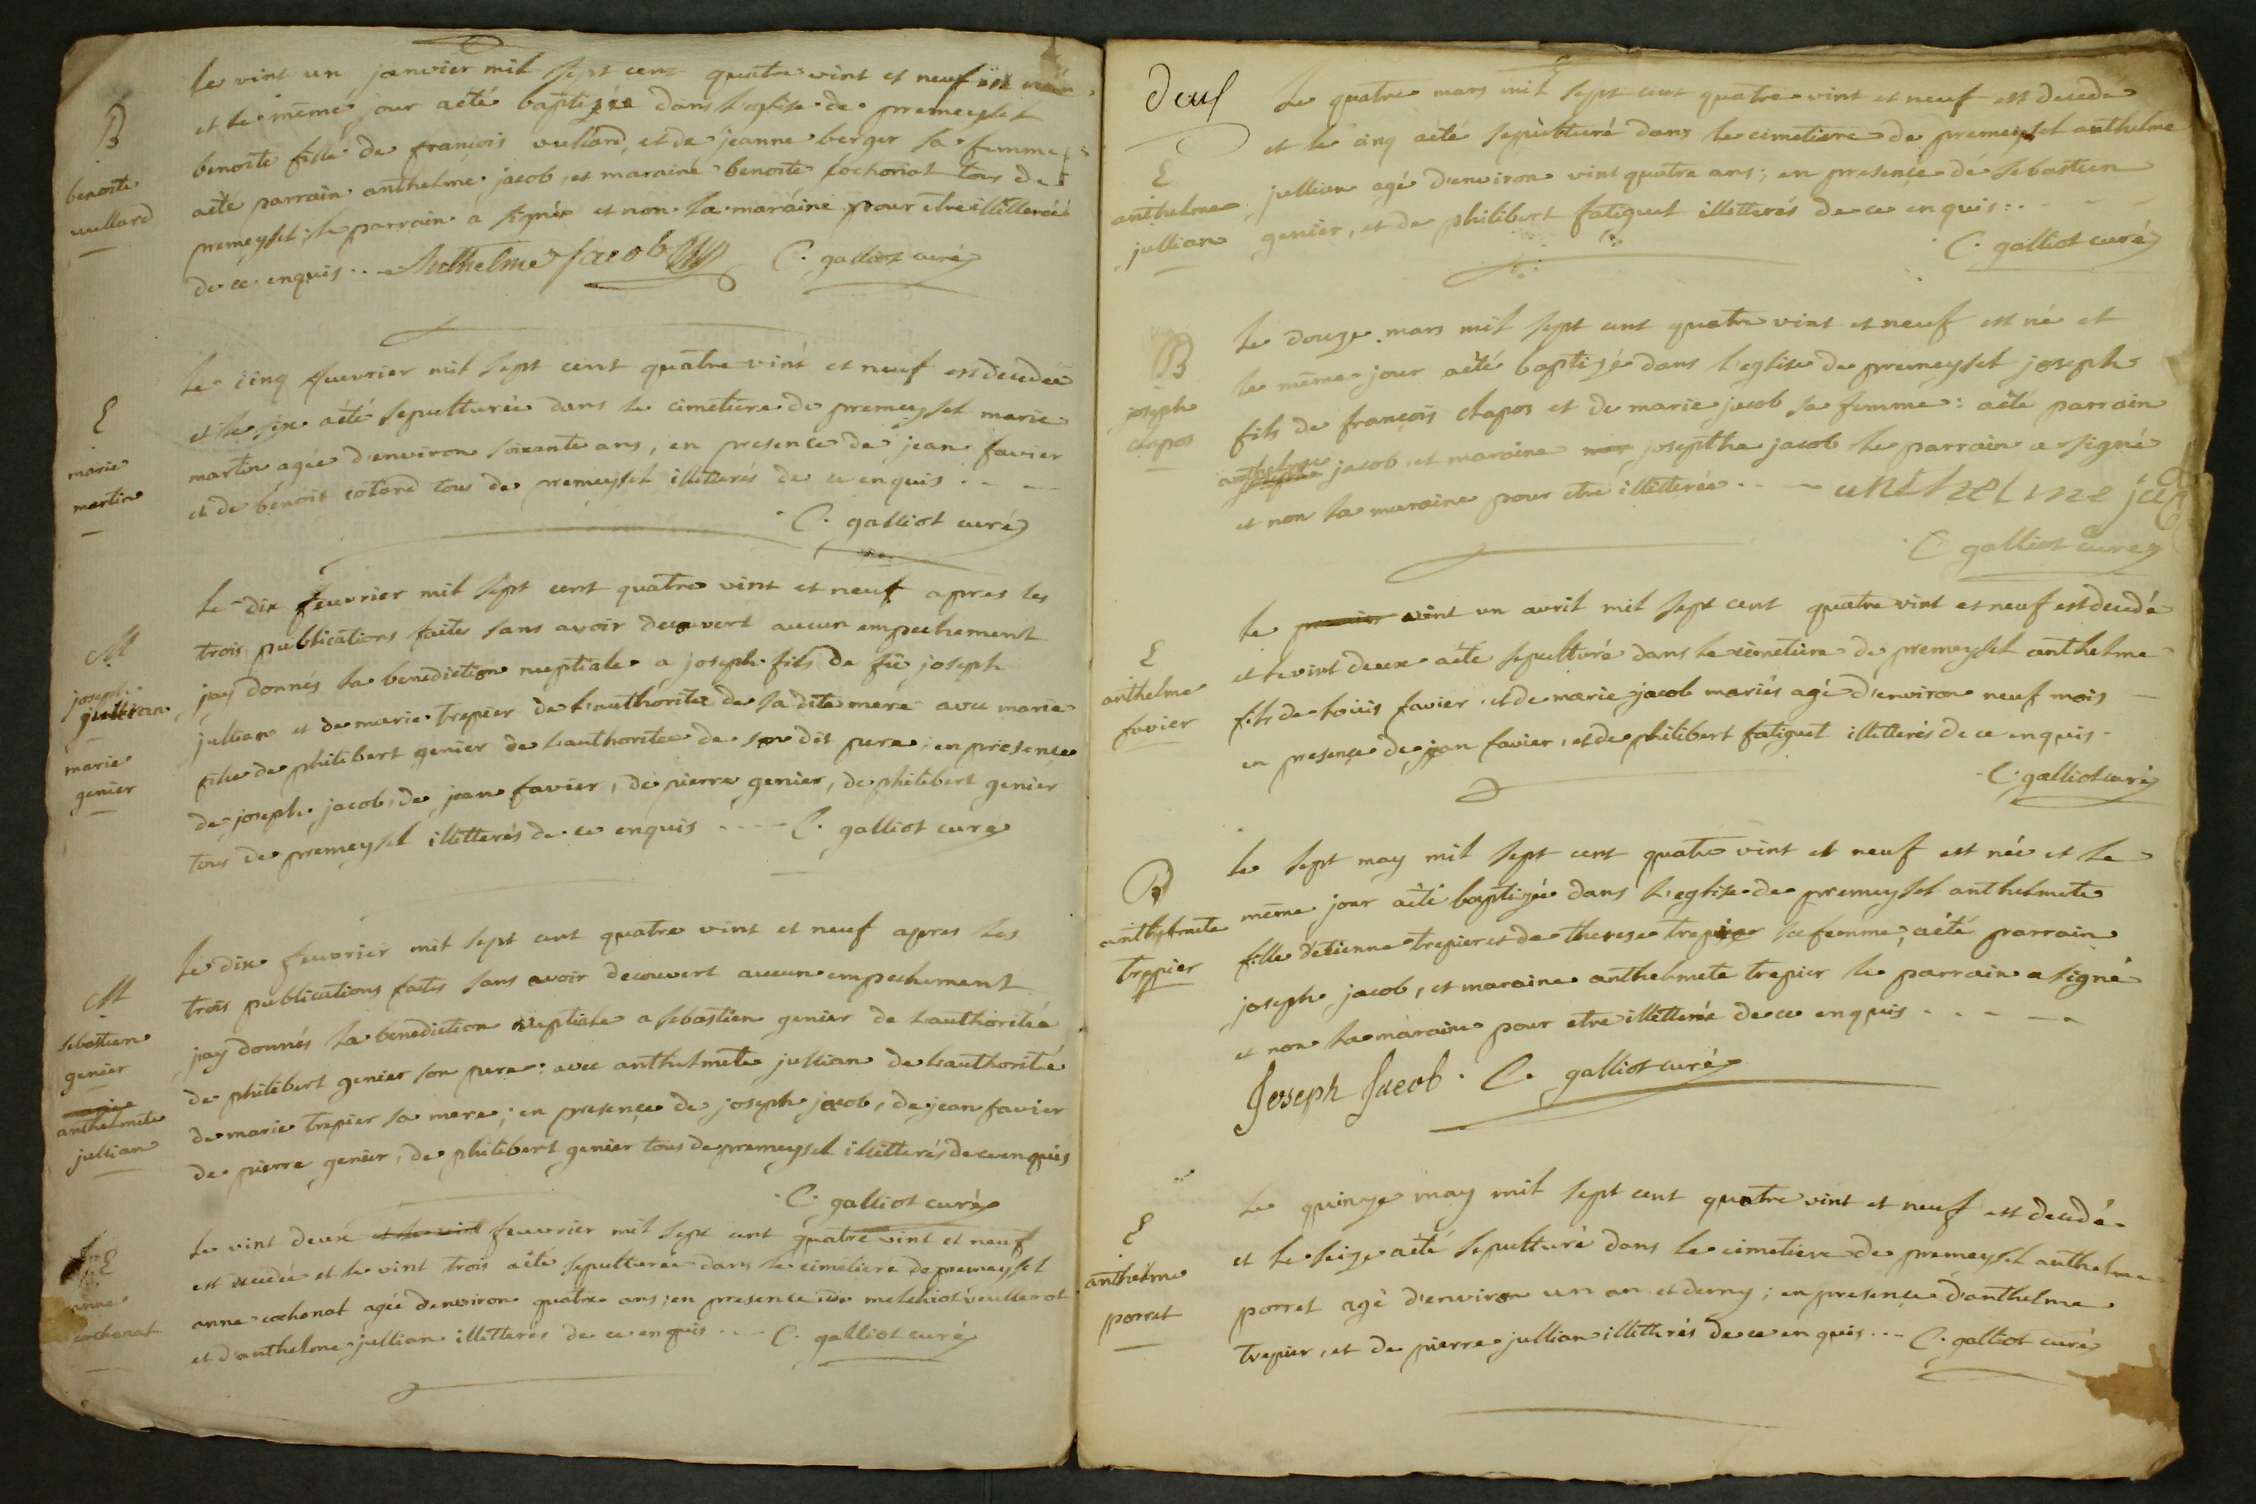 B
benoite
vullard
le vint un janvier mil sept cent quatre vint et neuf est née
et le même jour aété baptizée dans l'eglise de premeysel
benoite fille de françois vullard, et de jeanne berger sa femme
aété parrain anthelme jacob, et maraine benoite cochonat tous de
premeysel; le parrain a signé et non la maraine pour etre illitterée
de ce enquis.. Anthelme Jacob C. galliot curé
E
marie
martin
le cinq feuvrier mil sept cent quatre vint et neuf est decedée
et le six aété sepulturée dans le cimetiere de premeysel marie
martin agée d'environ soixante ans, en presence de jean favier
et de benoit cotard tous de premeysel illitterés de ce enquis . - -
C. galliot curé
M
joseph
jullian
marie
genier
le dix feuvrier mil sept cent quatre vint et neuf apres les
trois publications faites sans avoir decouvert aucun empechement
jay donnés la benediction nuptiale a joseph fils de fû joseph
jullian et de marie trepier de l'authoritée de sa dite mere avec marie
fille de philibert genier de l'authoritée de son dit pere; en presence
de joseph jacob, de jean favier, de pierre genier, de philibert genier
tous de premeysel illitterés de ce enquis - - - - C. galliot cure
M
sebastien
genier
marie
anthelmete
jullian
le dix feuvrier mil sept cent quatre vint et neuf apres les
trois publications faites sans avoir decouvert aucun empechement
jay donnés la benediction nuptiale a sebastien genier de l'authoritée
de philibert genier son pere: avec anthelmete jullian de l'authoritée
de marie trepier sa mere; en presence de joseph jacob, de jean favier
de pierre genier, de philibert genier tous de premeysel illitterés de ce enquis
C. galliot curé
E
anne
cochonat
le vint deux et le vint feuvrier mil sept cent quatre vint et neuf
est decedée et le vint trois aété sepulturée dans le cimetiere de premeysel
anne cochonat agée d'environ quatre ans; en presence de melchiot veullerot
et d'anthelme jullian illitterés de ce enquis .. - C. galliot curé
Deux
E
anthelme
jullian
le quatre mars mil sept cent quatre vint et neuf est decedé
et le cinq aété sepulturé dans le cimetiere de premeysel anthelme
jullian agé d'environ vint quatre ans; en presence de sebastien
genier, et de philibert fatiguet illitterés de ce enquis: - - -
C. galliot curé
B
joseph
chapos
le douze mars mil sept cent quatre vint et neuf est né et
le même jour aété baptizé dans l'eglise de premeysel joseph
fils de françois chapos et de marie jacob sa femme: aété parrain
anthelme jacob, et maraine josepthe jacob le parrain a signé
et non la maraine pour etre illitterée . - - anthelme ja
C galliot curé
E
anthelme
favier
le premier vint un avril mil sept cent quatre vint et neuf est decedé
et le vint deux aété sepulturé dans le cimetiere de premeysel anthelme
fils de louis favier, et de marie jacob mariés agé d'environ neuf mois
en presence de jean favier, et de philibert fatiguet illitterés de ce enquis -
C. galliot curé
B
anthelmete
trepier
le sept may mil sept cent quatre vint et neuf est née et le
même jour aété baptizée dans l'eglise de premeysel anthelmete
fille d'etienne trepier et de therese trepier sa femme; aété parrain
joseph jacob, et maraine anthelmete trepier le parrain a signé
et non la maraine pour etre illitterée de ce enquis . - - - -
Joseph Jacob. C. galliot curé
E
anthelme
porret
le quinze may mil sept cent quatre vint et neuf est decedé
et le seize aété sepulturé dans le cimetiere de premeysel anthelme
porret agé d'environ un an et demy; en presence d'anthelme
trepier, et de pierre jullian illitterés de ce enquis... C. galliot curé